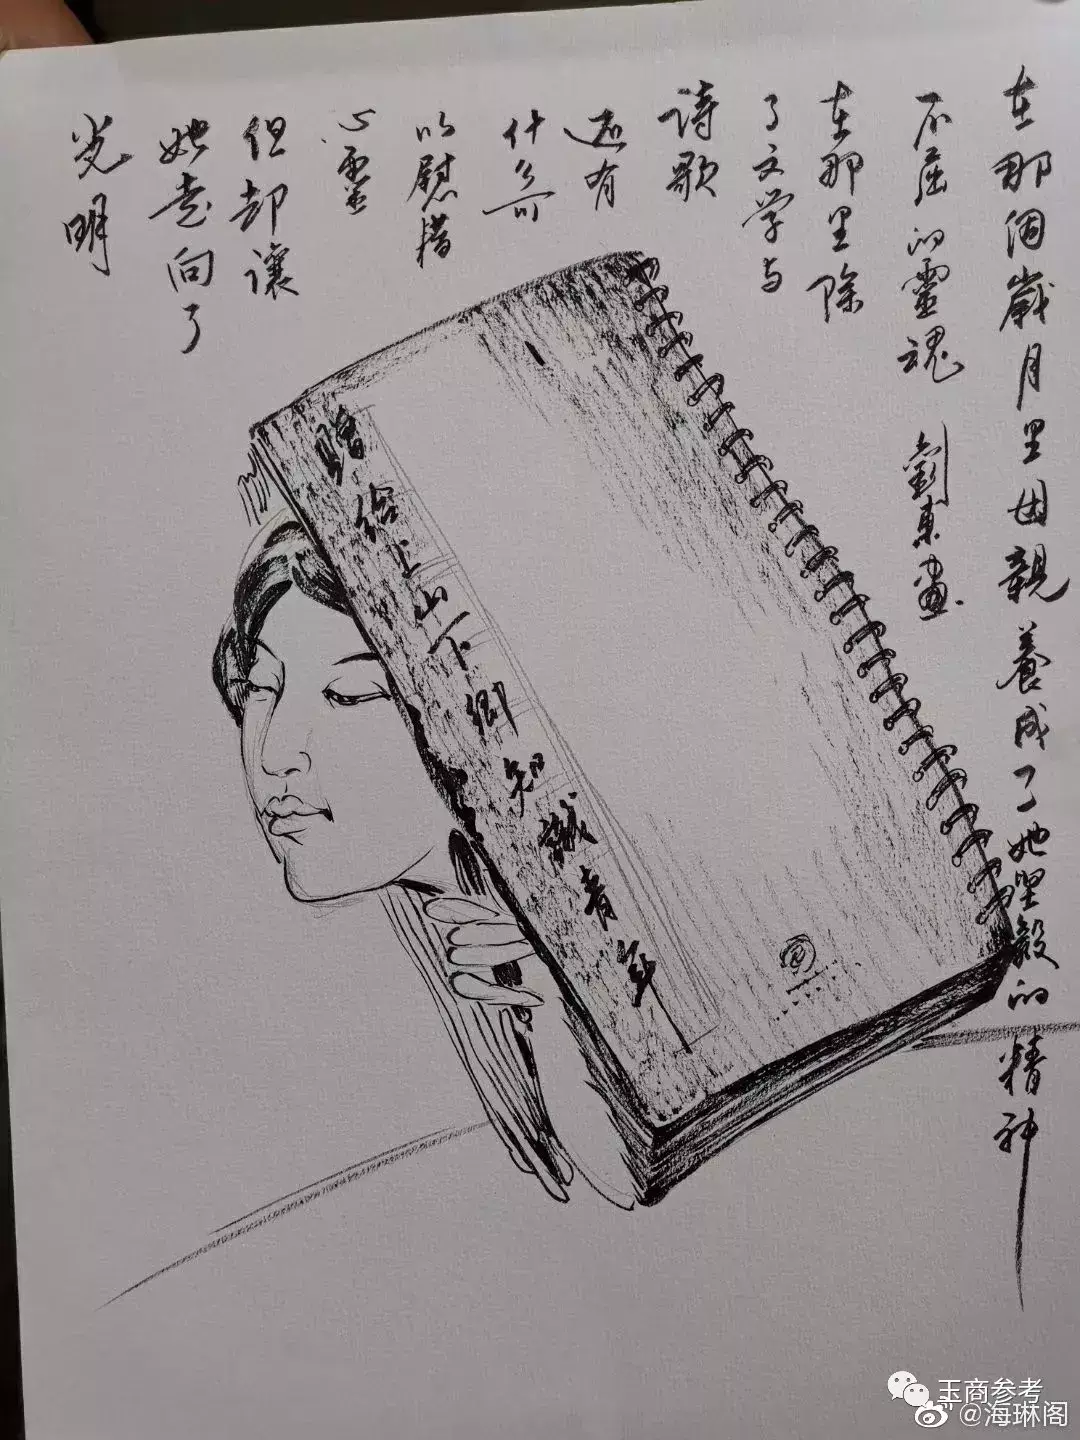 在那個歲月里母親養成了她堅毅的精神
不屈的靈魂 劉東畫
在那里除
了文学与
诗歌
还有
什么可
以慰措
心霊
但却讓
她走向了
光明
贈给上山下鄉知識青年
玉商参考
@海琳阁